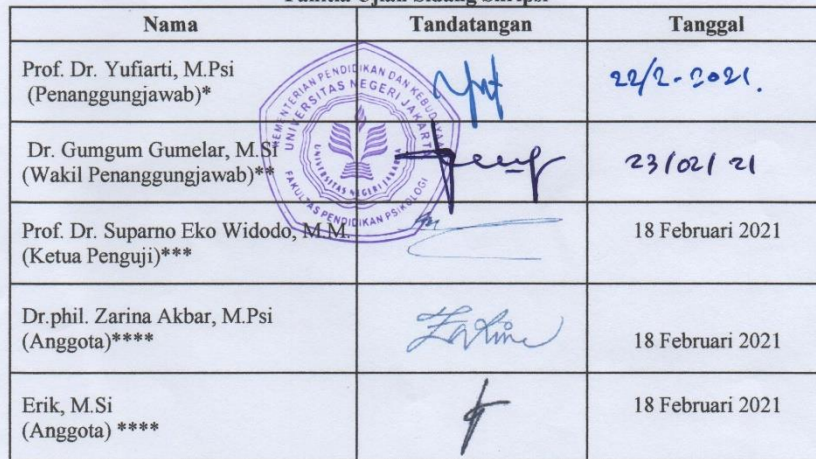 Panitia Ujian Sidang Skripsi
Nama Tandatangan Tanggal
Prof. Dr. Yufiarti, M.Psi
(Penanggungjawab)*
22/2-2021.
Dr. Gumgum Gumelar, M.Si
(Wakil Penanggungjawab)**
23/02/21
Prof. Dr. Suparno Eko Widodo, M.M.
(Ketua Penguji)***
18 Februari 2021
Dr.phil. Zarina Akbar, M.Psi
(Anggota)****
18 Februari 2021
Erik, M.Si
(Anggota) ****
18 Februari 2021
KEMENTERIAN PENDIDIKAN DAN KEBUDAYAAN
UNIVERSITAS NEGERI JAKARTA
UNIVERSITAS NEGERI JAKARTA
FAKULTAS PENDIDIKAN PSIKOLOGI